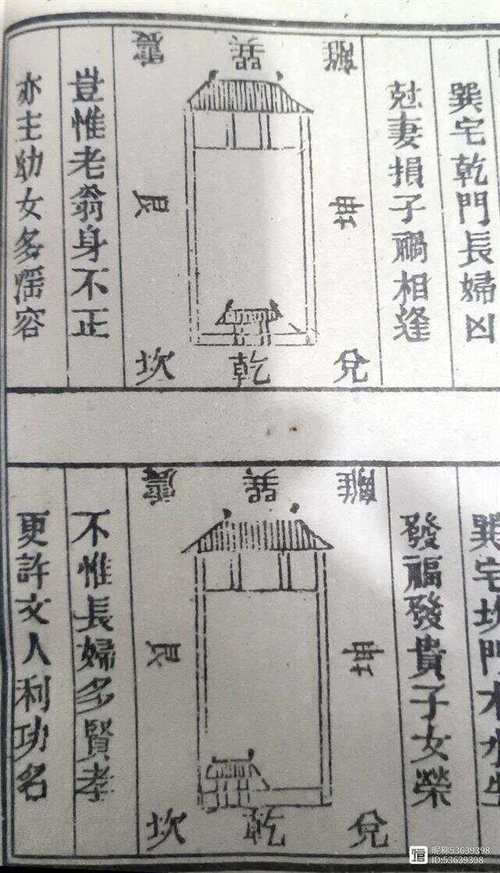 巽宅乾門長婦凶
尅妻損子禍相逢
離 巽 震
坤 艮
兌 乾 坎
豈惟老翁身不正
亦主幼女多淫容
巽宅坎門木水生
發福發貴子女榮
離 巽 震
坤 艮
兌 乾 坎
不惟長婦多賢孝
更許文人利功名
昵称53639398
ID:53639398